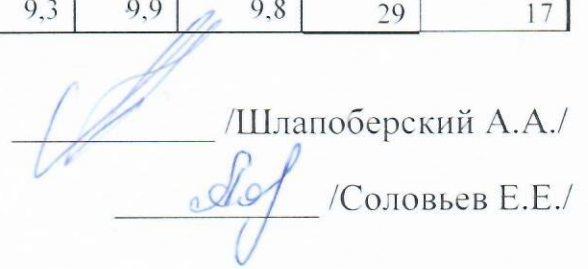 9,3 9,9 9,8 29 17
/Шлапоберский А.А./
/Соловьев Е.Е./